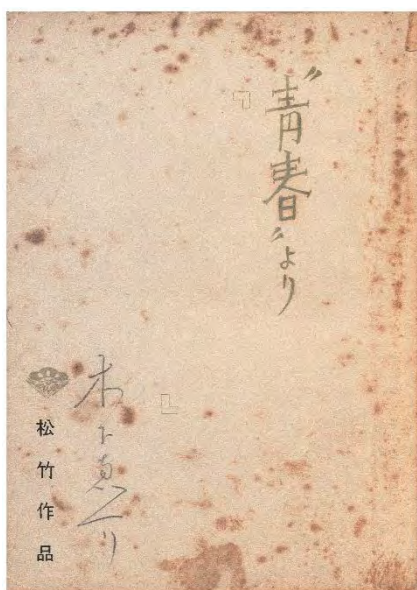 〝青春〟より
『
』
木下恵介
松竹作品